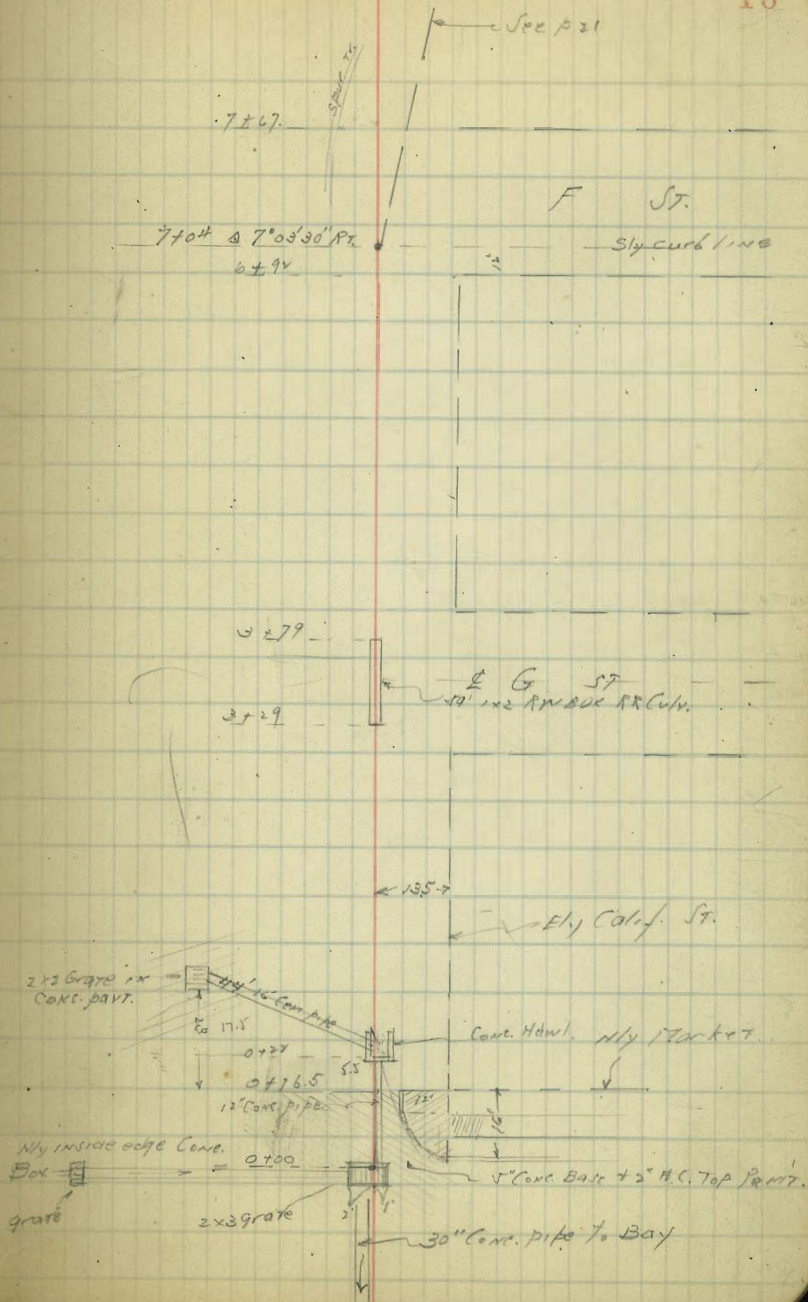 See p 21
Spur
7±67
F ST.
7+04 Δ 7°03'30" Rt.
Sly curb line
6±92
3±79
₵ G ST
50' 1x2 RR Culv.
3+29
13.5
Ely Calif. St.
2x3 Grate in
Conc. pavt.
16" Conc. pipe
17.5
Conc. Hdwl.
Nly Market
5.5
0+16.5
12" Conc. pipe
12'
Nly inside edge Conc.
Box
0+00
5" Conc. Base + 2" A.C. Top Pavm't.
grate
2x3 grate
2'
1'
30" Conc. pipe to Bay